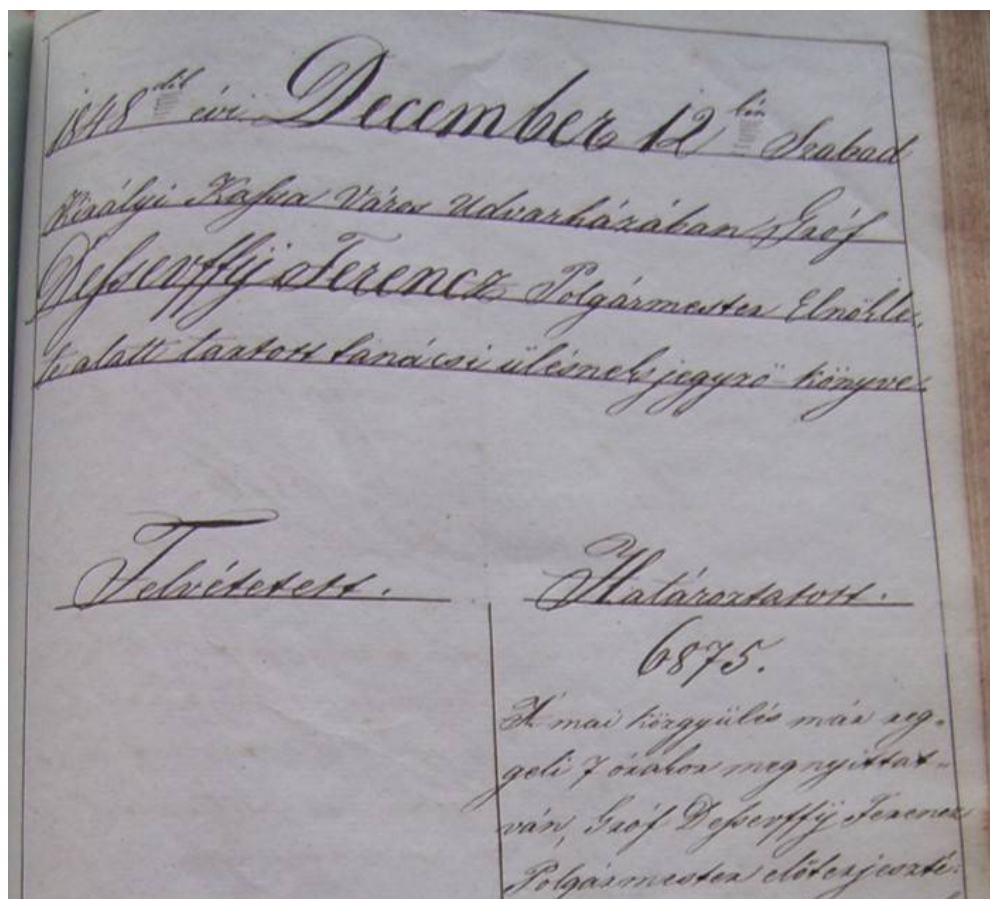 1848dik évi December 12kén Szabad
Királyi Kassa Város Udvarházában Gróf
Dessewffÿ Ferencz Polgármester Elnökle-
te alatt tartott tanácsi ülésnek jegyző könyve.
Felvétetett.
Határoztatott.
6875.
A mai közgyülés már reg-
geli 7 órakor megnyittat-
ván, Gróf Dessewffÿ Ferencz
Polgármester előterjeszti